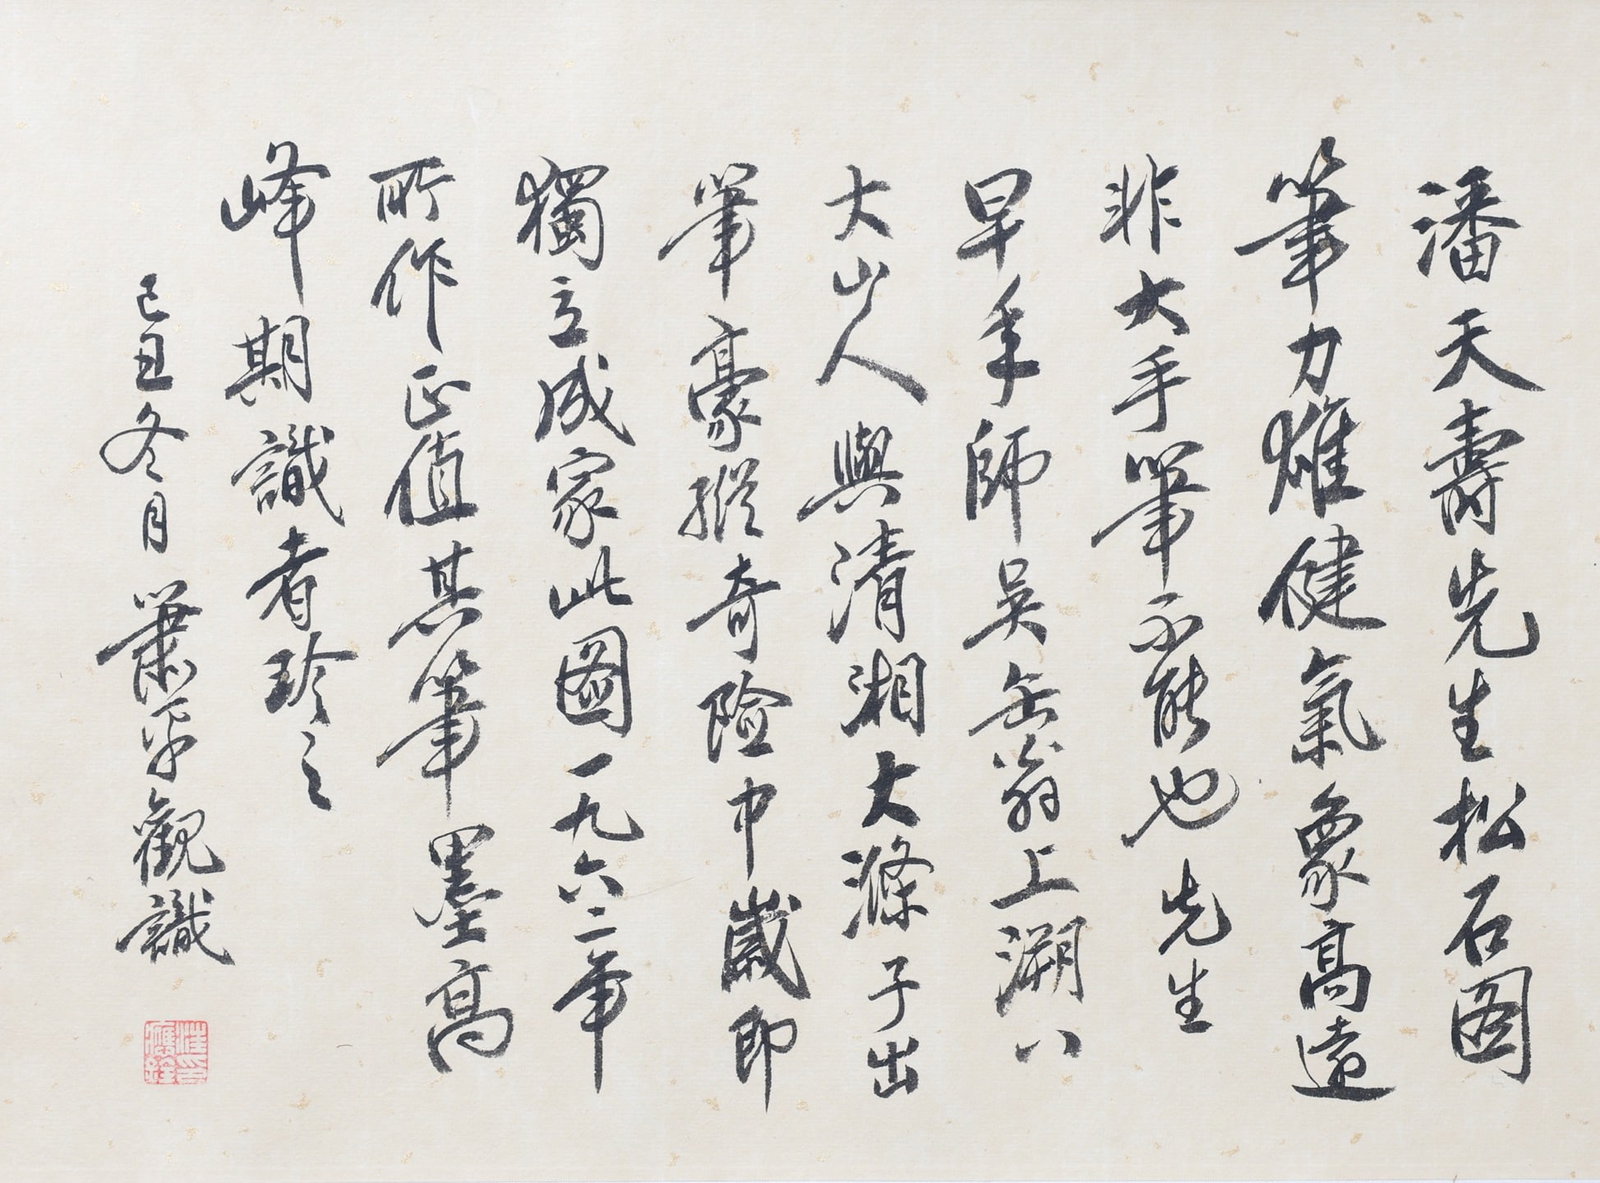 潘天壽先生松石图
筆力雄健氣象高遠
非大手筆不能也先生
早年師吴缶翁上溯八
大山人與清湘大滌子出
筆豪縱奇險中歲即
獨立成家此圖一九六二年
所作正值其筆墨高
峰期識者珍之
己丑冬月蕭平觀識